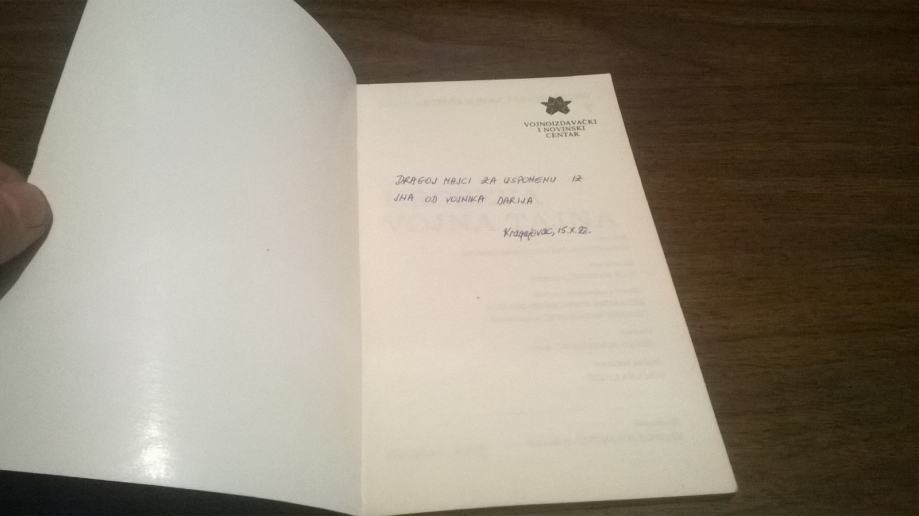 VOJNOIZDAVAČKI
I NOVINSKI
CENTAR
DRAGOJ MAJCI ZA USPOMENU IZ
JNA OD VOJNIKA DARIJA
Kragujevac, 15.X.